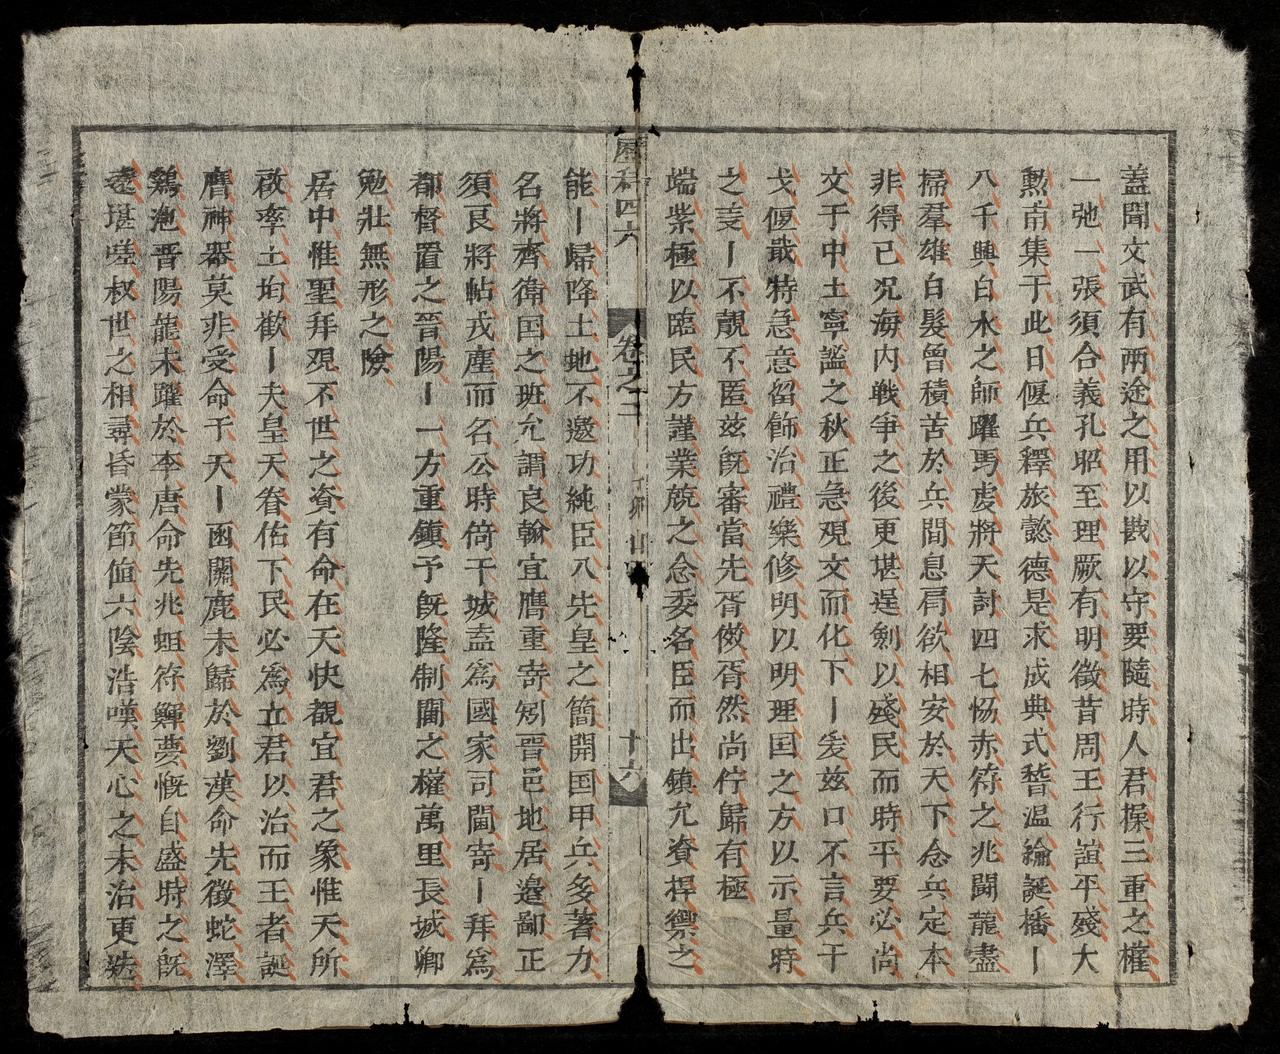 盖聞文武有兩途之用以戡以守要隨時人君操三重之權
一弛一張須合義孔昭至理厥有明徵昔周王行誼平殘大
勲甫集于此日偃兵釋旅懿德是求成典式稽溫綸誕播丨
八千興白水之師躍馬虔將天討四七恊赤符之兆鬪龍盡
掃羣雄白髮曾積苦於兵間息肩欲相安於天下念兵定本
非得已况海内戦爭之後更堪逞劍以殘民而時平要必尚
文于中土寧謐之秋正急观文而化下丨爰兹口不言兵干
戈偃戢特急意留飭治禮樂修明以明理囯之方以示量時
之变丨不覿不匿兹旣審當先胥傚胥然尚佇歸有極
端紫極以臨民方謹業兢之念委名臣而出鎮允資捍禦之
歷科四六 卷之二 十六
能丨歸降土地不邀功純臣八先皇之簡開囯甲兵多著力
名將齊衛囯之班允謂良翰宜膺重寄矧晋邑地居邉鄙正
須良將帖戎塵而名公時倚干城盍爲國家司閫寄丨拜爲
都督置之晉陽丨一方重鎮予旣隆制閫之權萬里長城卿
勉壯無形之險
居中惟聖拜覌不世之資有命在天快覩宜君之象惟天所
啟率土均歡丨夫皇天眷佑下民必爲立君以治而王者誕
膺神器莫非受命于天丨函關鹿未歸於劉漢命先徵蛇澤
鷄泡晋陽龍未躍於李唐命先兆蛆符緬夢慨自盛時之旣
遠堪嗟叔世之相尋昏蒙節値六陰浩嘆天心之未治更迭